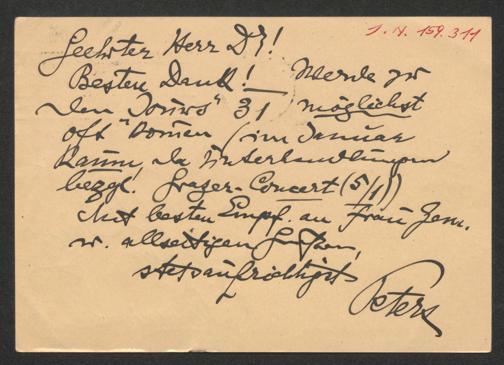 J. N. 159.311
Geehrter Herr Dr!
Besten Dank! Werde zu
den Jours" 31 möglichst
oft kommen (im Januar
kaum, da Unterhandlungen
bezgl. Grazer-Concert (5/I))
Mit besten Empf. an Frau Gem.
u. allseitigen
stets aufrichtigst
Peters